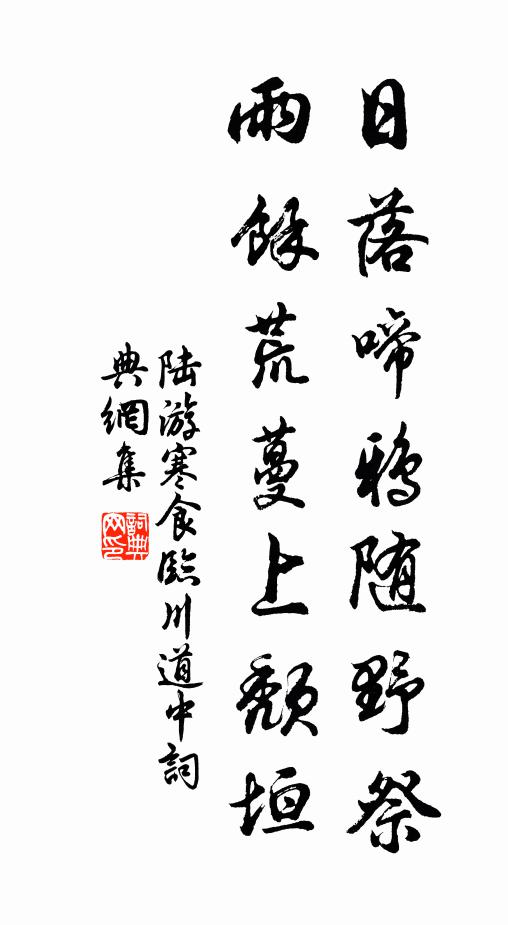 日落啼鴉随野祭
雨餘荒蔓上頽垣
陆游寒食臨川道中詞
典網集
詞典
网印